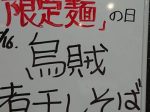 「限定麺」の日
/16.
烏賊
煮干しそば